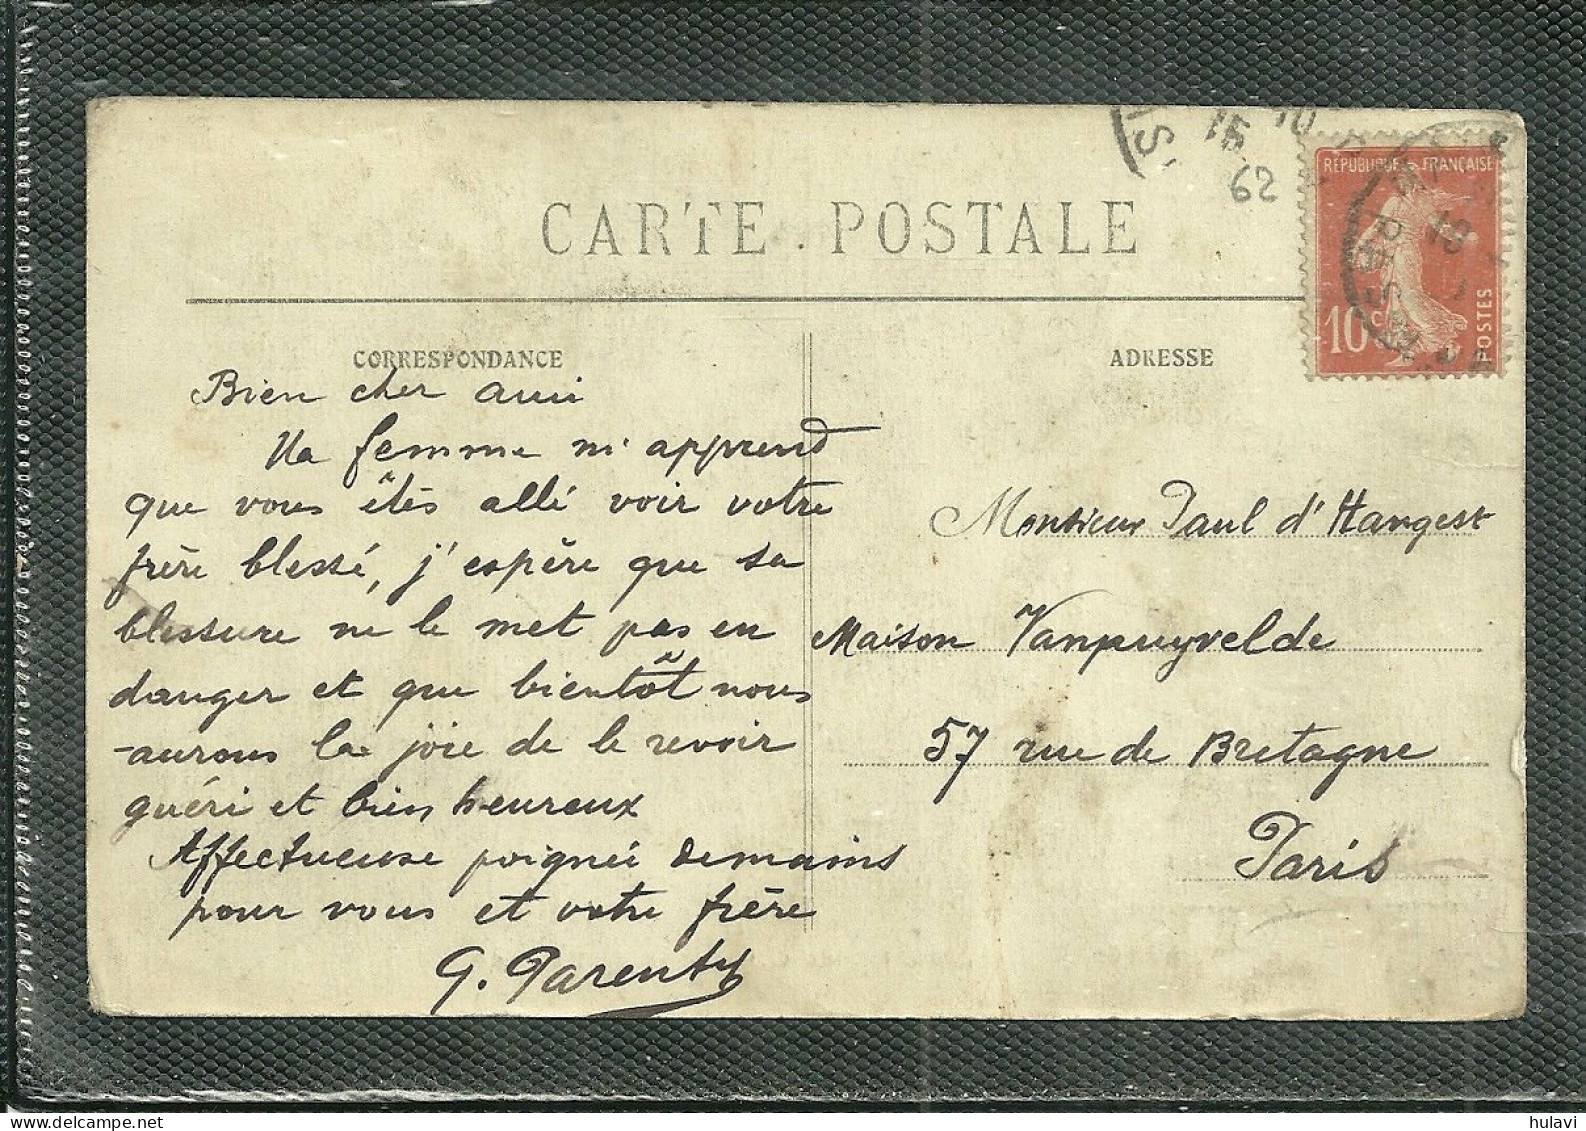 CARTE POSTALE
CORRESPONDANCE
Bien cher ami
Ma femme m'apprend
que vous êtes allé voir votre
frère blessé, j'espère que sa
blessure ne le met pas en
danger et que bientôt nous
aurons la joie de le revoir
guéri et bien heureux
Affectueuse poignée de mains
pour vous et votre frère
G. Parenty
ADRESSE
Monsieur Paul d'Hangest
Maison Vanpuyvelde
57 rue de Bretagne
Paris
15 10
62
REPUBLIQUE FRANÇAISE
10 c
POSTES
hulavi